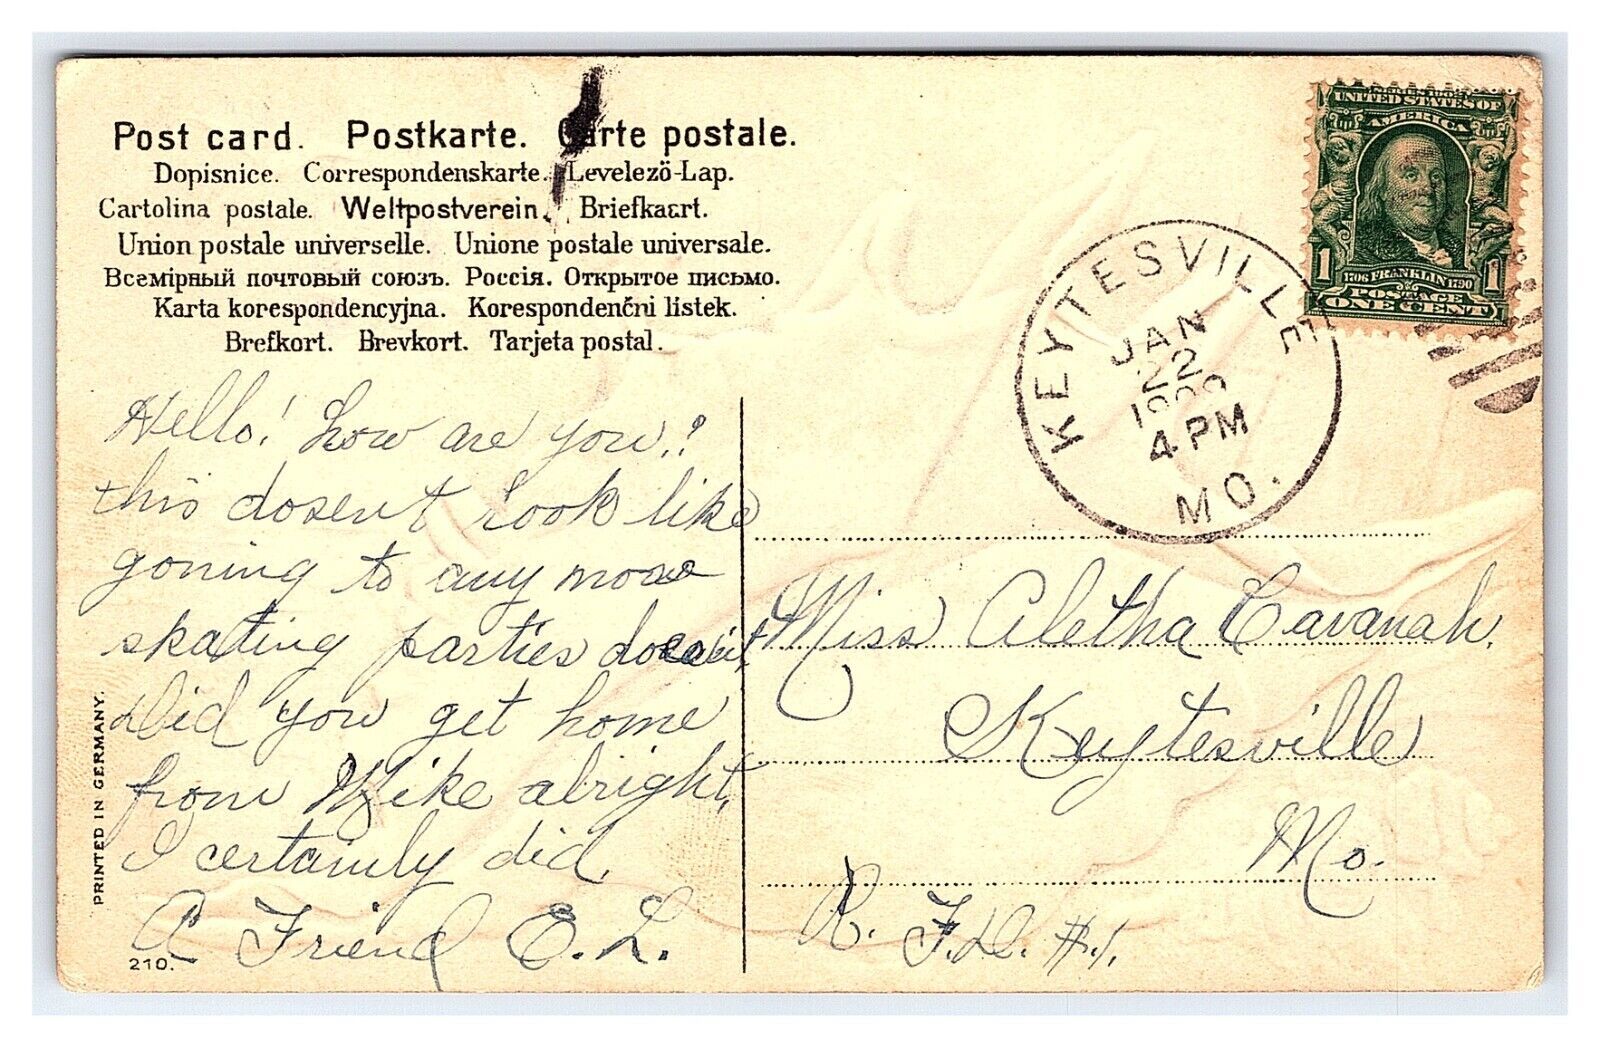 Post card. Postkarte. Carte postale.
Dopisnice. Correspondenskarte. Levelező-Lap.
Cartolina postale. Weltpostverein. Briefkaart.
Union postale universelle. Unione postale universale.
Всемірный почтовый союзъ. Россія. Открытое письмо.
Karta korespondencyjna. Korespondenčni listek.
Brefkort. Brevkort. Tarjeta postal.
UNITED STATES OF
AMERICA
1706 FRANKLIN 1790
1 1
POSTAGE
ONE CENT
KEYTESVILLE
JAN
22
1909
4 PM
MO.
Hello! how are you!?
this dosent look like
goning to any more
skating parties dosent.
Did you get home
from Mike alright,
I certainly did.
A Friend E. L.
Miss Aletha Cavanah.
Keytesville
Mo.
R. F. D. #.1.
PRINTED IN GERMANY.
210.